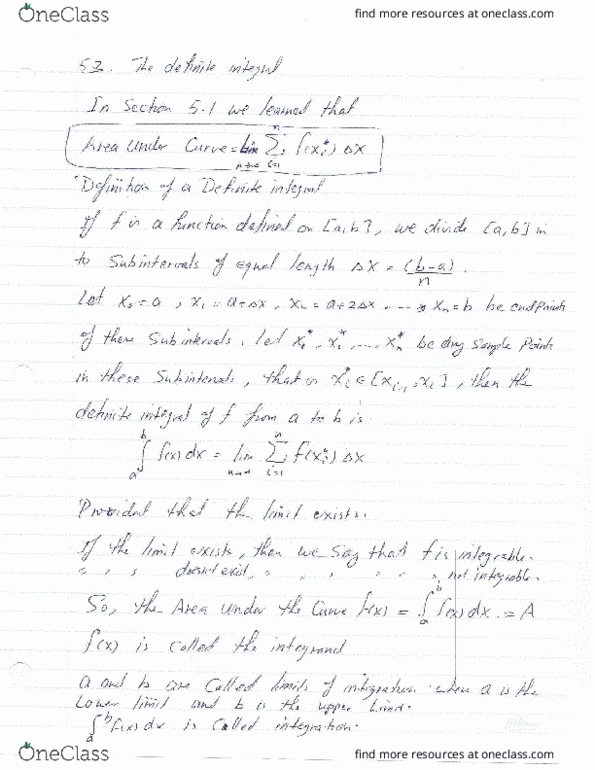 OneClass
find more resources at oneclass.com
5.2. The definite integral
In Section 5.1 we learned that
Area Under Curve = lim n→∞ ∑ i=1 n f(xi*) Δx
Definition of a Definite integral
If f is a function defined on [a,b], we divide [a,b] in
to Subintervals of equal length Δx = (b-a)/n.
Let x₀ = a, x₁ = a+Δx, x₂ = a+2Δx ..... xn = b be endpoints
of these Subintervals. Let x₁*, x₂*, ... xn* be any Sample Points
in these Subintervals, that is xi* ∈ [xi-1, xi], then the
definite integral of f from a to b is
∫ₐᵇ f(x) dx = lim n→∞ ∑ i=1 n f(xi*) Δx
Provided that the limit exists.
If the limit exists, then we Say that f is integrable.
" " " doesn't exist, " " " " " not integrable.
So, the Area under the Curve f(x) = ∫ₐᵇ f(x) dx. = A
f(x) is called the integrand
a and b are called limits of integration when a is the
Lower limit and b is the upper Limit.
∫ₐᵇ f(x) dx is called integration.
OneClass
find more resources at oneclass.com